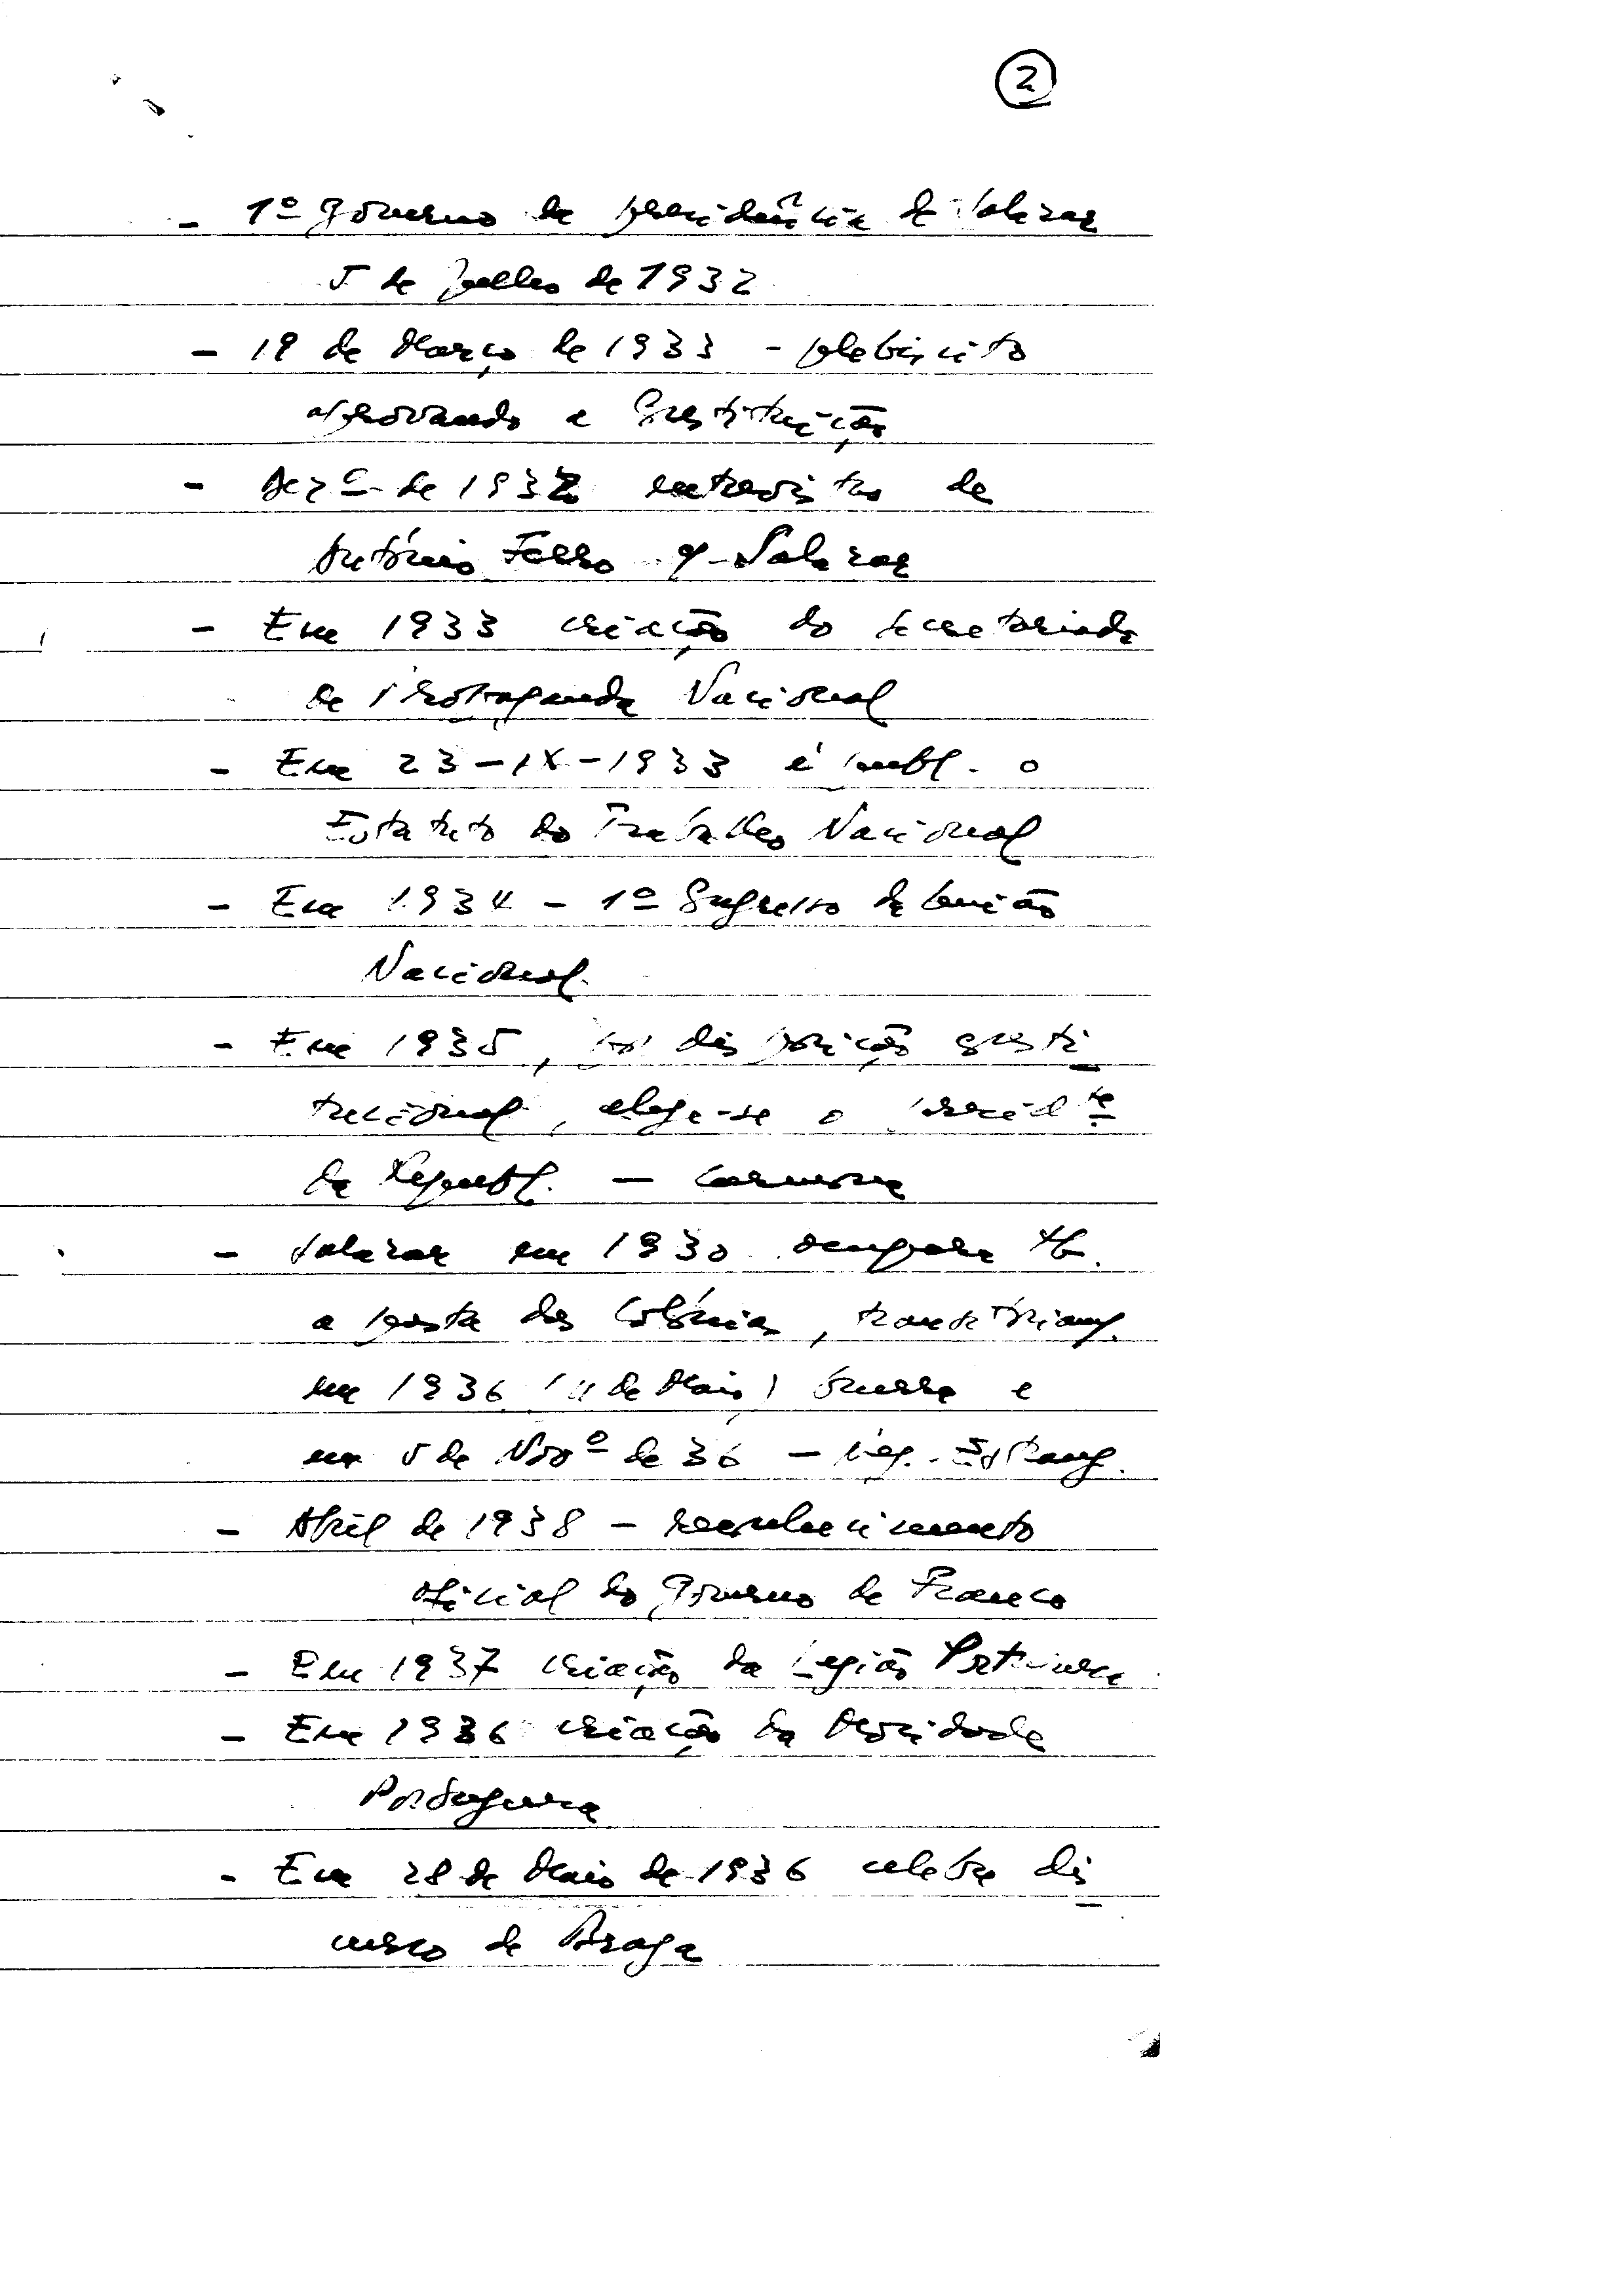 2
- 1º Governo da presidência de Salazar
5 de Julho de 1932
- 19 de Março de 1933 - plebiscito
aprovando a Constituição
- Dezº de 1932 entrevistas de
António Ferro a Salazar
- Em 1933 criação do Secretariado
de Propaganda Nacional
- Em 23-IX-1933 é publ. o
Estatuto do Trabalho Nacional
- Em 1934 - 1º Congresso da União
Nacional.
- Em 1935, por disposição consti
tucional, elege-se o presidte
da Republ. - Carmona
- Salazar em 1930 ocupara tb.
a pasta das Colónias,
em 1936 (11 de Maio) Guerra e
em 5 de Novº de 36 - Neg. Estrang.
- Abril de 1938 - reconhecimento
oficial do Governo de Franco
- Em 1937 criação da Legião Portuguesa
- Em 1936 criação da Mocidade
Portuguesa
- Em 28 de Maio de 1936 celebre dis
curso de Braga